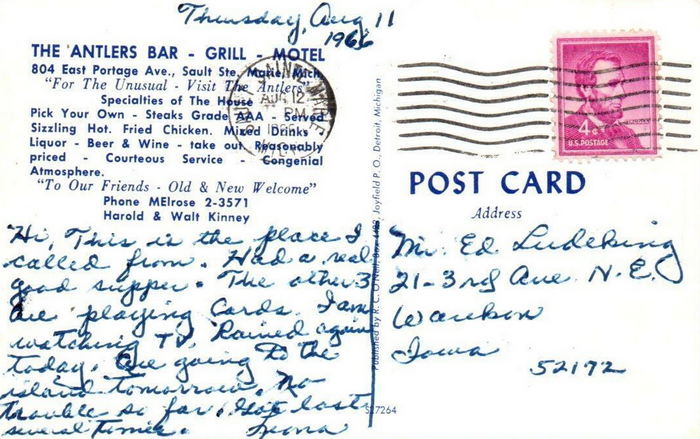 Thursday, Aug 11
1966
THE ANTLERS BAR - GRILL - MOTEL
804 East Portage Ave., Sault Ste. Marie, Mich.
"For The Unusual - Visit The Antlers"
Specialties of The House
Pick Your Own - Steaks Grade AAA - Served
Sizzling Hot. Fried Chicken. Mixed Drinks
Liquor - Beer & Wine - take out. Reasonably
priced - Courteous Service - Congenial
Atmosphere.
"To Our Friends - Old & New Welcome"
Phone MElrose 2-3571
Harold & Walt Kinney
Hi, This is the place I
called from. Had a real
good supper. The other 3
are playing cards. I am
watching TV. Rained again
today. Are going to the
island tomorrow. No
trouble so far. Got lost
several times. Leona
SAINTE MARIE
AUG 12
PM
MICH
4¢
U.S. POSTAGE
POST CARD
Address
Mr. Ed Ludeking
21-3rd Ave. N.E.
Waukon
Iowa
52172
Published by R. C. O'Neil, Box 4492, Joyfield P. O., Detroit, Michigan
S27264